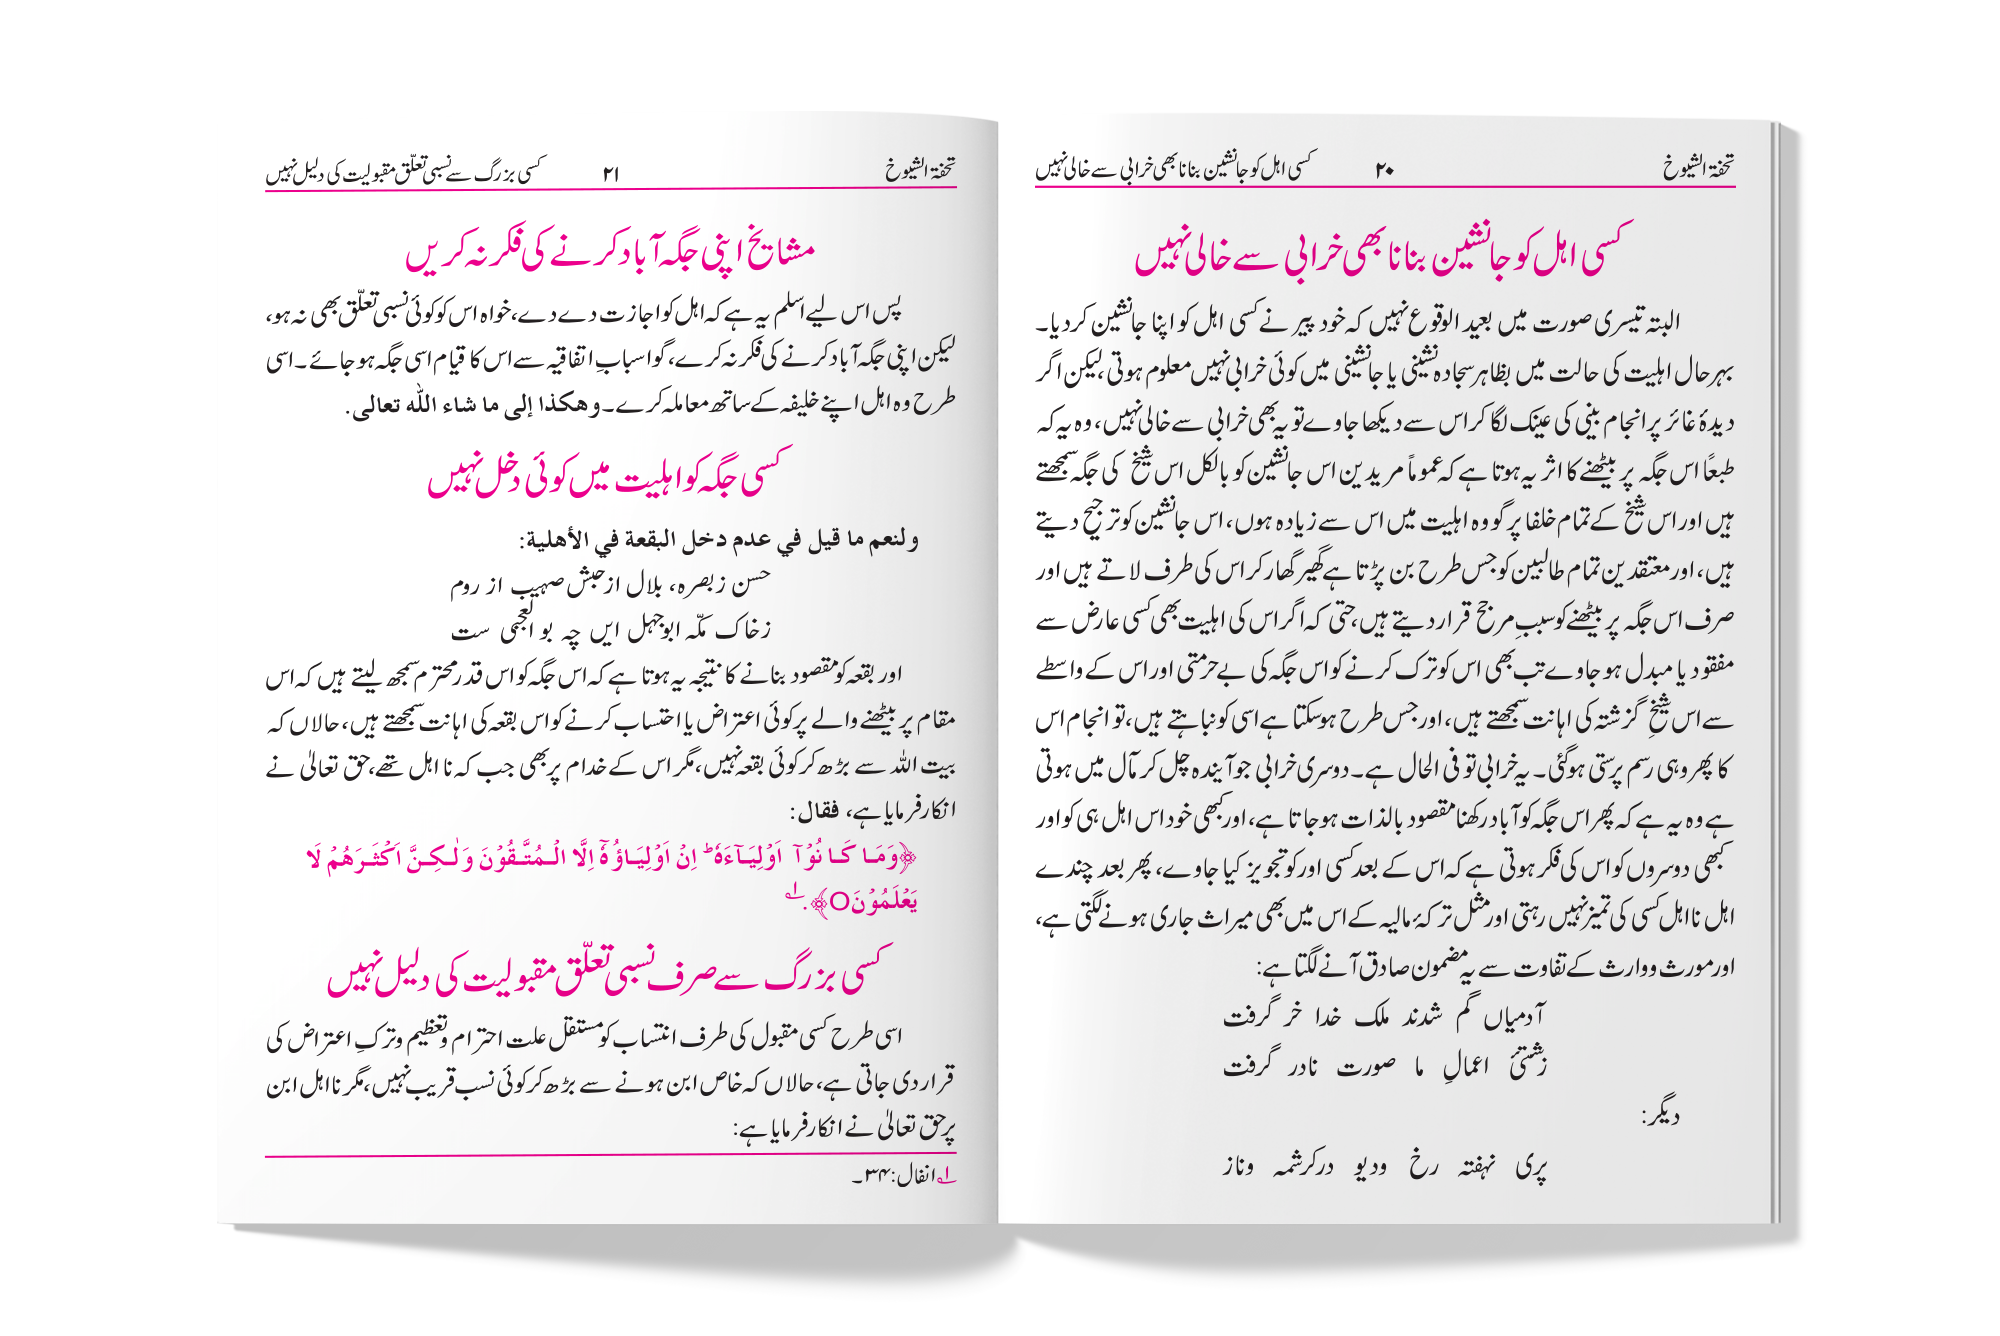 تحفۃ الشیوخ ۲۰ کسی اہل کو جانشین بنانا بھی خرابی سے خالی نہیں
کسی اہل کو جانشین بنانا بھی خرابی سے خالی نہیں
البتہ تیسری صورت میں بعید الوقوع نہیں کہ خود پیر نے کسی اہل کو اپنا جانشین کردیا۔
بہرحال اہلیت کی حالت میں بظاہر سجادہ نشینی یا جانشینی میں کوئی خرابی نہیں معلوم ہوتی، لیکن اگر
دیدۂ غائر پر انجام بینی کی عینک لگا کر اس سے دیکھا جاوے تو یہ بھی خرابی سے خالی نہیں، وہ یہ کہ
طبعًا اس جگہ پر بیٹھنے کا اثر یہ ہوتا ہے کہ عموماً مریدین اس جانشین کو بالکل اس شیخ کی جگہ سمجھتے
ہیں اور اس شیخ کے تمام خلفا پر گو وہ اہلیت میں اس سے زیادہ ہوں، اس جانشین کو ترجیح دیتے
ہیں، اور معتقدین تمام طالبین کو جس طرح بن پڑتا ہے گھیر گھار کر اس کی طرف لاتے ہیں اور
صرف اس جگہ پر بیٹھنے کو سببِ مرجح قرار دیتے ہیں، حتی کہ اگر اس کی اہلیت بھی کسی عارض سے
مفقود یا مبدل ہوجاوے تب بھی اس کو ترک کرنے کو اس جگہ کی بے حرمتی اور اس کے واسطے
سے اس شیخِ گزشتہ کی اہانت سمجھتے ہیں، اور جس طرح ہوسکتا ہے اسی کو نباہتے ہیں، تو انجام اس
کا پھر وہی رسم پرستی ہوگئی۔ یہ خرابی تو فی الحال ہے۔ دوسری خرابی جو آیندہ چل کر مآل میں ہوتی
ہے وہ یہ ہے کہ پھر اس جگہ کو آباد رکھنا مقصود بالذات ہوجاتا ہے، اور کبھی خود اس اہل ہی کو اور
کبھی دوسروں کو اس کی فکر ہوتی ہے کہ اس کے بعد کسی اور کو تجویز کیا جاوے، پھر بعد چندے
اہل نااہل کسی کی تمیز نہیں رہتی اور مثل ترکۂ مالیہ کے اس میں بھی میراث جاری ہونے لگتی ہے،
اور مورث ووارث کے تفاوت سے یہ مضمون صادق آنے لگتا ہے:
آدمیاں گم شدند ملک خدا خر گرفت
زشتئ اعمالِ ما صورت نادر گرفت
دیگر:
پری نہفتہ رخ ودیو درکرشمہ وناز
تحفۃ الشیوخ ۲۱ کسی بزرگ سے نسبی تعلّق مقبولیت کی دلیل نہیں
مشایخ اپنی جگہ آباد کرنے کی فکر نہ کریں
پس اس لیے اسلم یہ ہے کہ اہل کو اجازت دے دے، خواہ اس کو کوئی نسبی تعلّق بھی نہ ہو،
لیکن اپنی جگہ آباد کرنے کی فکر نہ کرے، گو اسبابِ اتفاقیہ سے اس کا قیام اسی جگہ ہوجائے۔ اسی
طرح وہ اہل اپنے خلیفہ کے ساتھ معاملہ کرے۔ وهكذا إلى ما شاء الله تعالى.
کسی جگہ کو اہلیت میں کوئی دخل نہیں
ولنعم ما قيل في عدم دخل البقعة في الأهلية:
حسن زبصرہ، بلال از حبش صہیب از روم
زخاک مکّہ ابوجہل ایں چہ بو العجمی ست
اور بقعہ کو مقصود بنانے کا نتیجہ یہ ہوتا ہے کہ اس جگہ کو اس قدر محترم سمجھ لیتے ہیں کہ اس
مقام پر بیٹھنے والے پر کوئی اعتراض یا احتساب کرنے کو اس بقعہ کی اہانت سمجھتے ہیں، حالاں کہ
بیت اللہ سے بڑھ کر کوئی بقعہ نہیں، مگر اس کے خدام پر بھی جب کہ نا اہل تھے، حق تعالیٰ نے
انکار فرمایا ہے، فقال:
﴿وَمَا كَانُوْآ اَوْلِيَآءَهٗ ؕ اِنْ اَوْلِيَاؤُهٗٓ اِلَّا الْمُتَّقُوْنَ وَلٰكِنَّ اَكْثَرَهُمْ لَا
يَعْلَمُوْنَO﴾.۱
کسی بزرگ سے صرف نسبی تعلّق مقبولیت کی دلیل نہیں
اسی طرح کسی مقبول کی طرف انتساب کو مستقل علت احترام وتعظیم وترکِ اعتراض کی
قرار دی جاتی ہے، حالاں کہ خاص ابن ہونے سے بڑھ کر کوئی نسب قریب نہیں، مگر نااہل ابن
پر حق تعالیٰ نے انکار فرمایا ہے:
۱ انفال: ۳۴۔